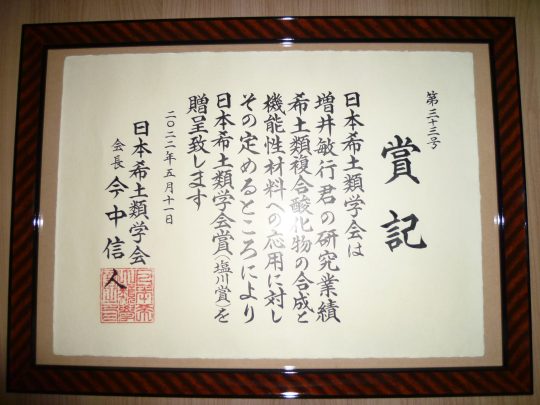 第三十三号
賞記
日本希土類学会は
増井敏行君の研究業績
希土類複合酸化物の合成と
機能性材料への応用に対し
その定めるところにより
日本希土類学会賞(塩川賞)を
贈呈致します
二〇二二年五月十一日
日本希土類学会
会長 今中信人